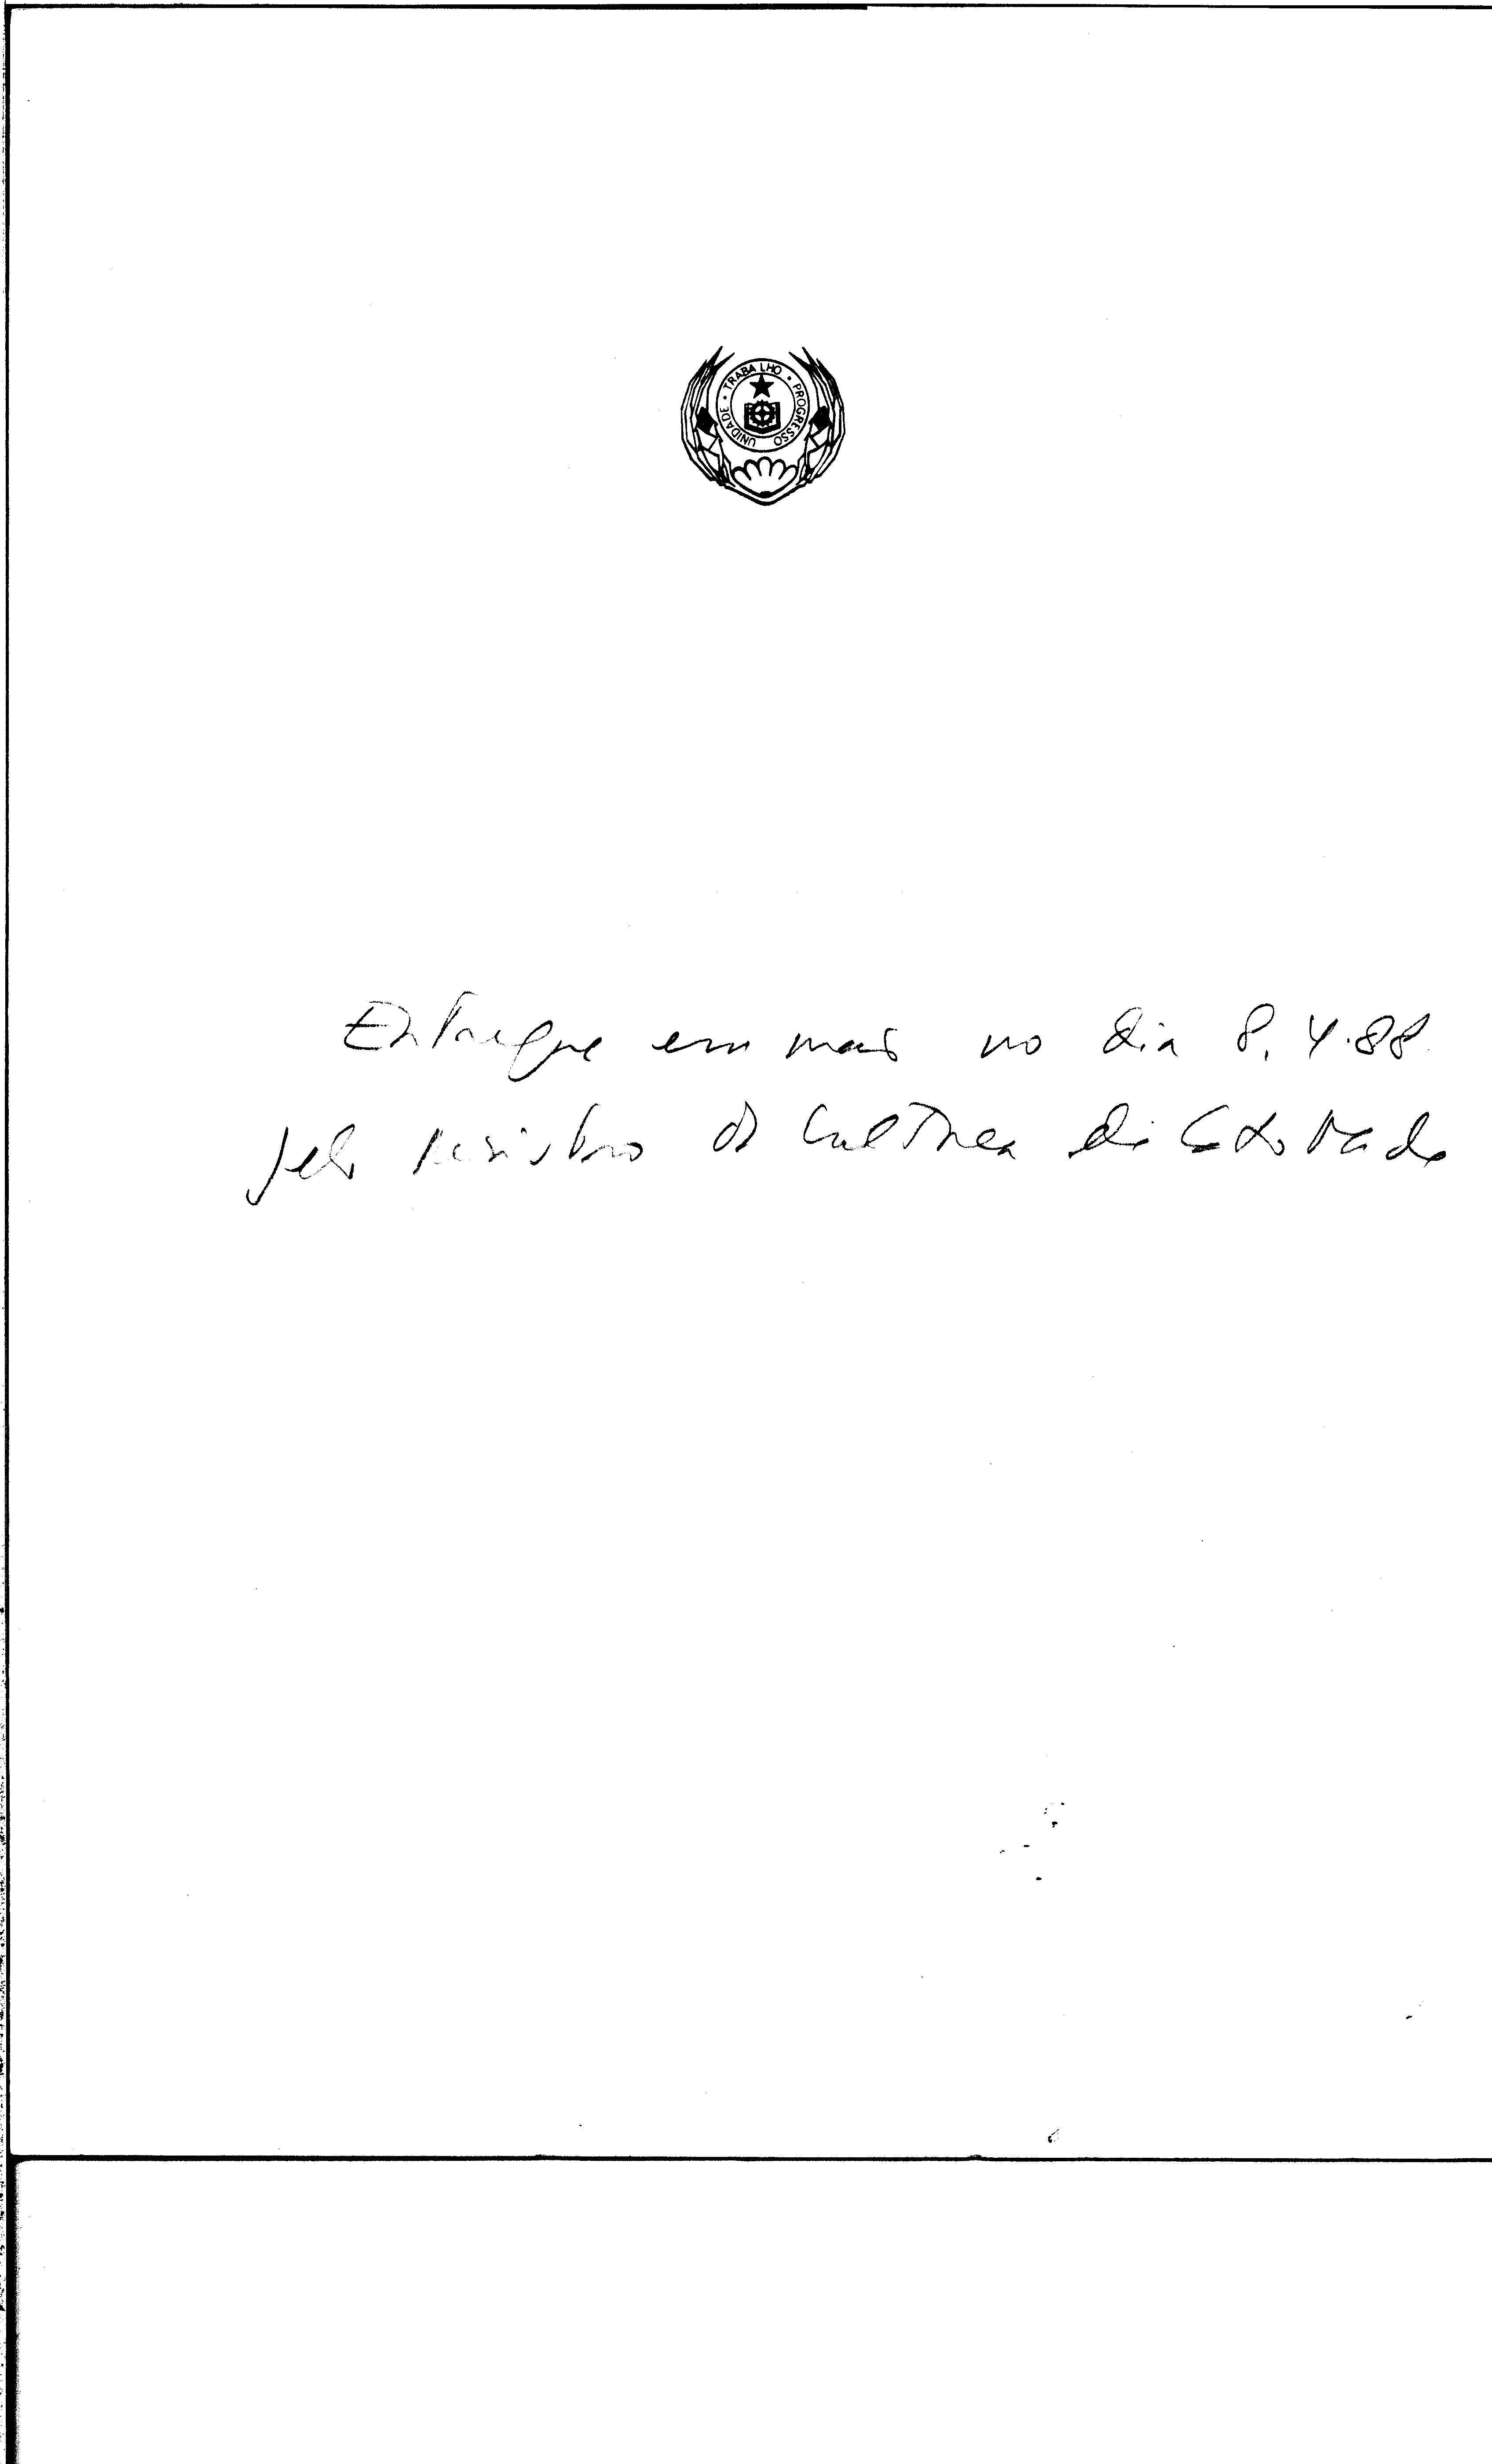 UNIDADE • TRABALHO • PROGRESSO
Entregue em mão no dia 8.4.88
pelo Ministro da Cultura de Cabo Verde